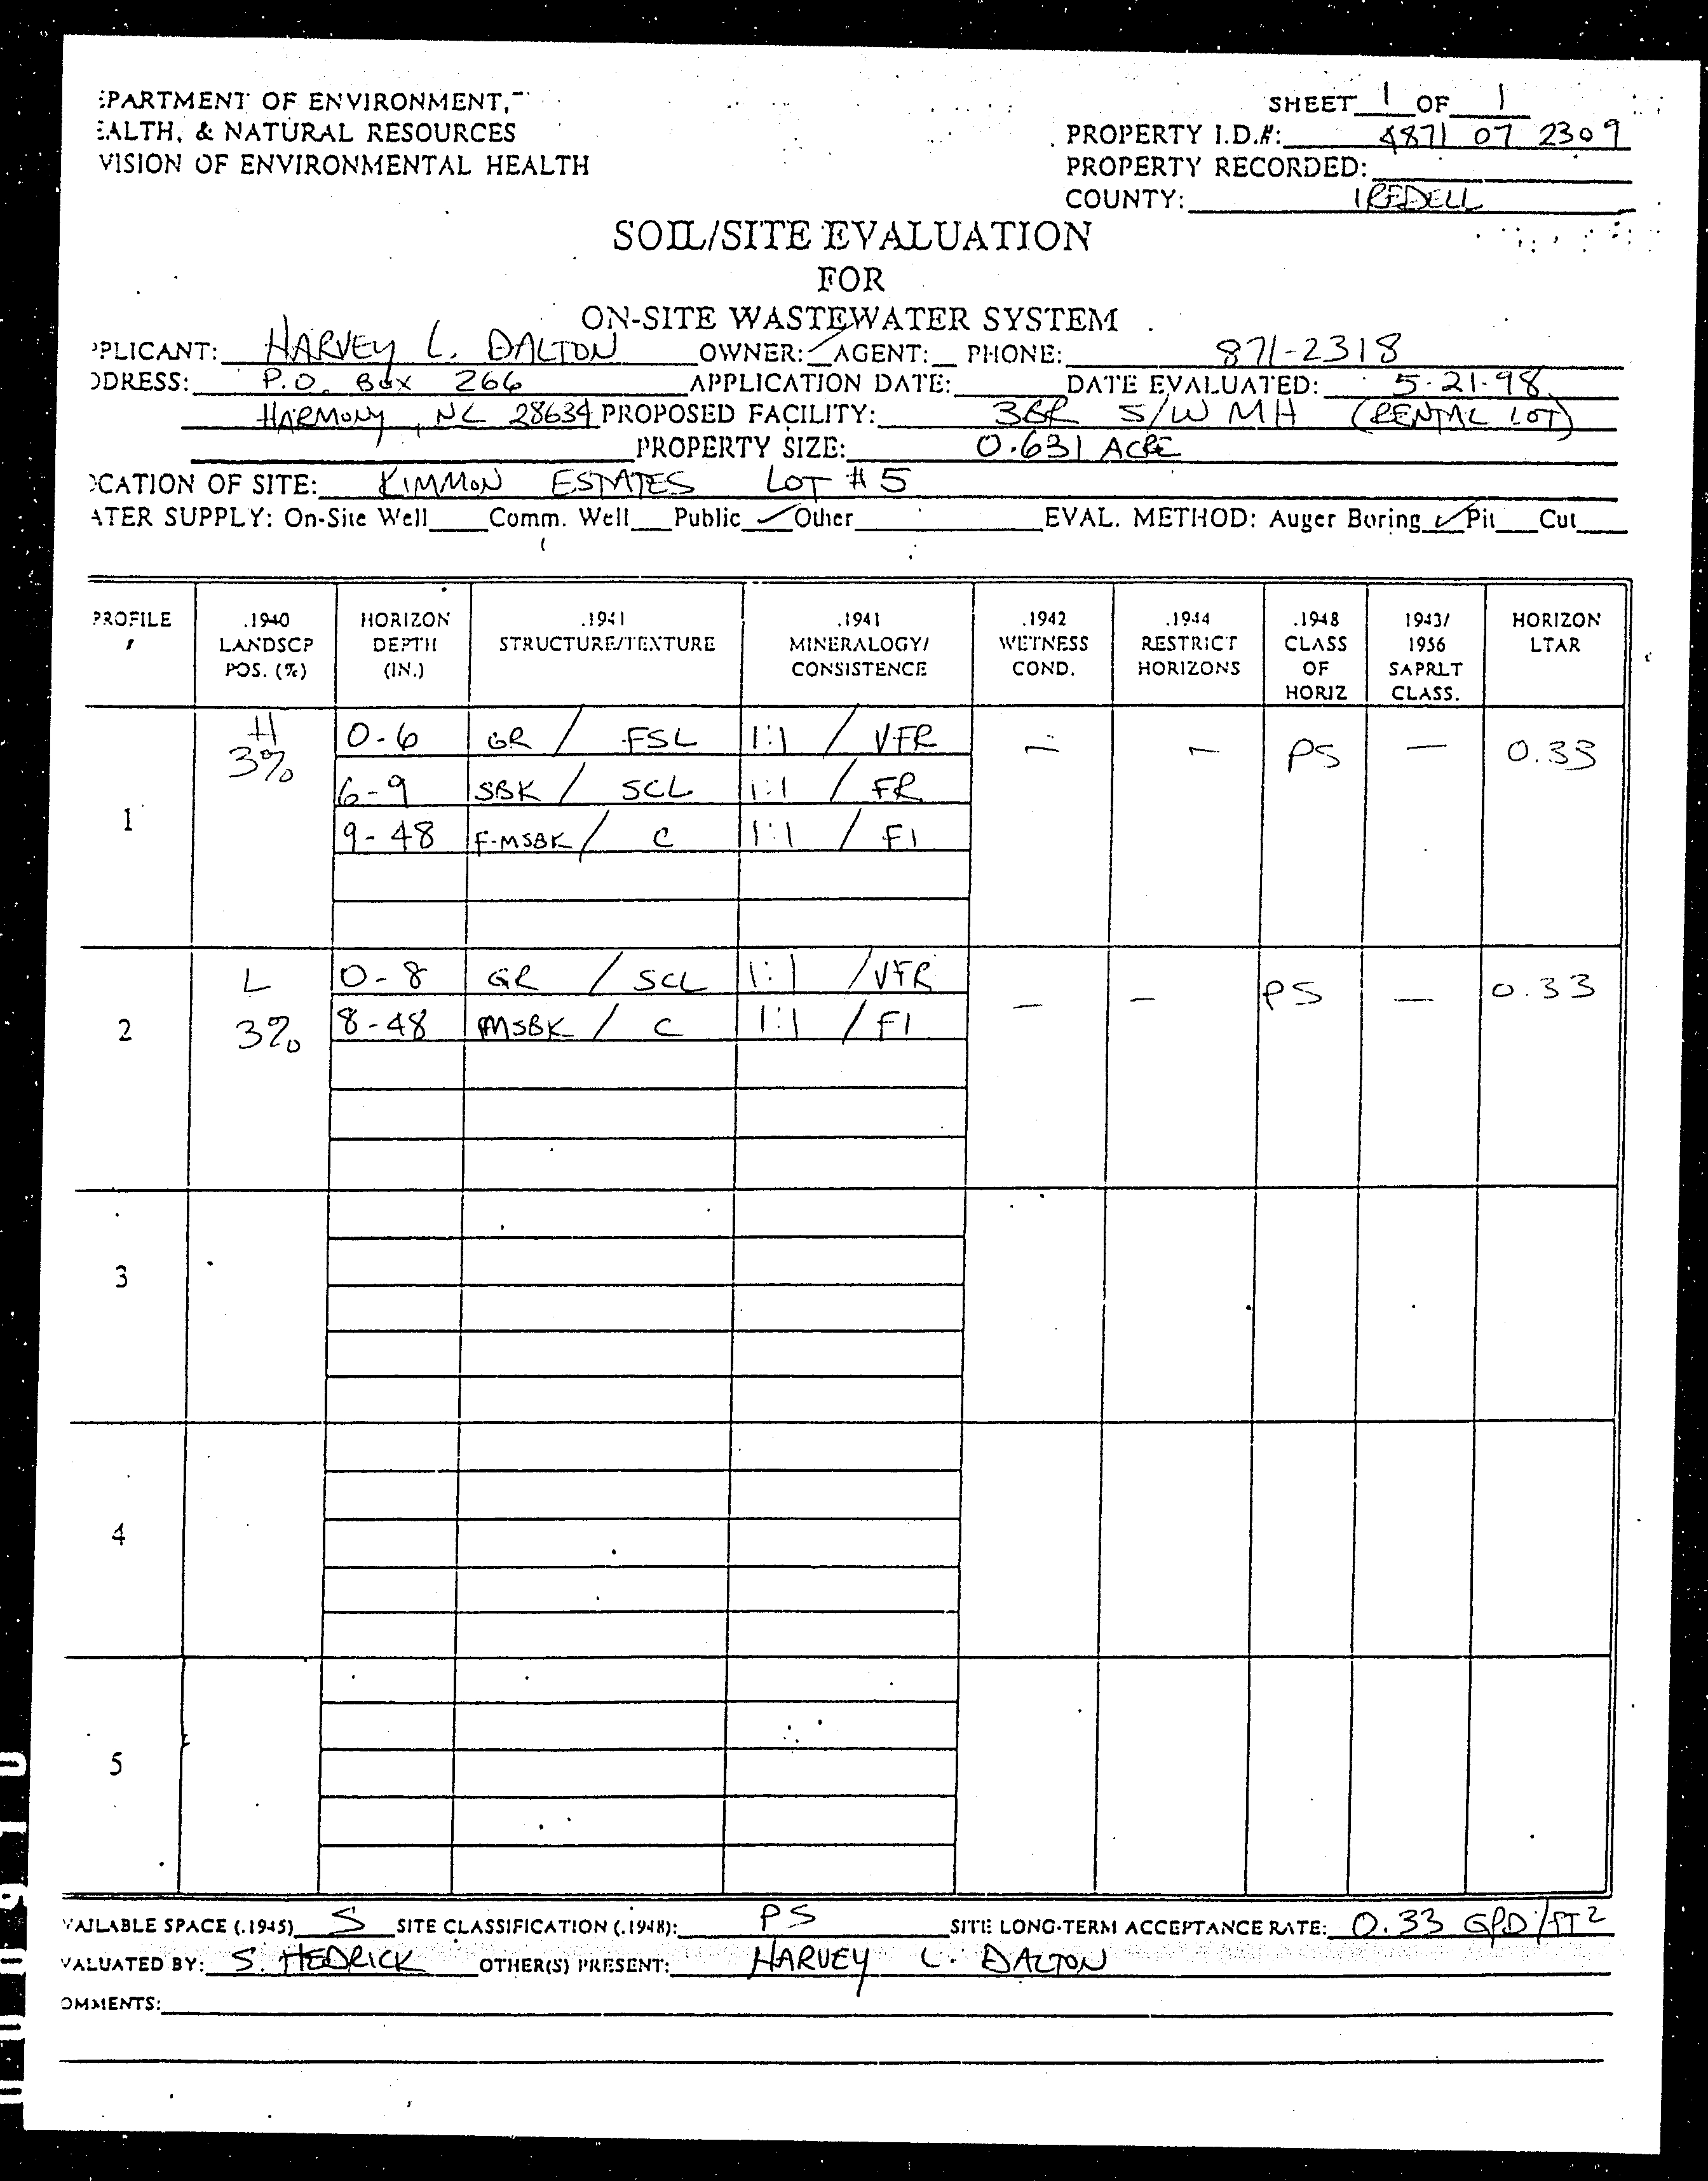 EPARTMENT OF ENVIRONMENT,
EALTH, & NATURAL RESOURCES
VISION OF ENVIRONMENTAL HEALTH
SHEET 1 OF 1
PROPERTY I.D.#: 4871 07 2309
PROPERTY RECORDED:
COUNTY: IREDELL
SOIL/SITE EVALUATION
FOR
ON-SITE WASTEWATER SYSTEM
PPLICANT: HARVEY L. DALTON OWNER: ✓ AGENT: PHONE: 871-2318
DDRESS: P.O. Box 266 APPLICATION DATE: DATE EVALUATED: 5-21-98
HARMONY, NC 28634 PROPOSED FACILITY: 3BR S/W MH (RENTAL LOT)
PROPERTY SIZE: 0.631 ACRE
OCATION OF SITE: KIMMON ESTATES LOT # 5
ATER SUPPLY: On-Site Well Comm. Well Public ✓ Other EVAL. METHOD: Auger Boring ✓ Pit Cut
PROFILE # .1940 LANDSCP POS. (%) HORIZON DEPTH (IN.) .1941 STRUCTURE/TEXTURE .1941 MINERALOGY/ CONSISTENCE .1942 WETNESS COND. .1944 RESTRICT HORIZONS .1948 CLASS OF HORIZ 1943/ 1956 SAPRLT CLASS. HORIZON LTAR
1 H 3% 0-6 GR / FSL 1:1 / VFR - - PS - 0.33
6-9 SBK / SCL 1:1 / FR
9-48 F-MSBK / C 1:1 / FI
2 L 3% 0-8 GR / SCL 1:1 / VFR - - PS - 0.33
8-48 MSBK / C 1:1 / FI
3
4
5
VAILABLE SPACE (.1945) S SITE CLASSIFICATION (.1948): PS SITE LONG-TERM ACCEPTANCE RATE: 0.33 GPD/FT2
VALUATED BY: S. HEDRICK OTHER(S) PRESENT: HARVEY L. DALTON
OMMENTS: